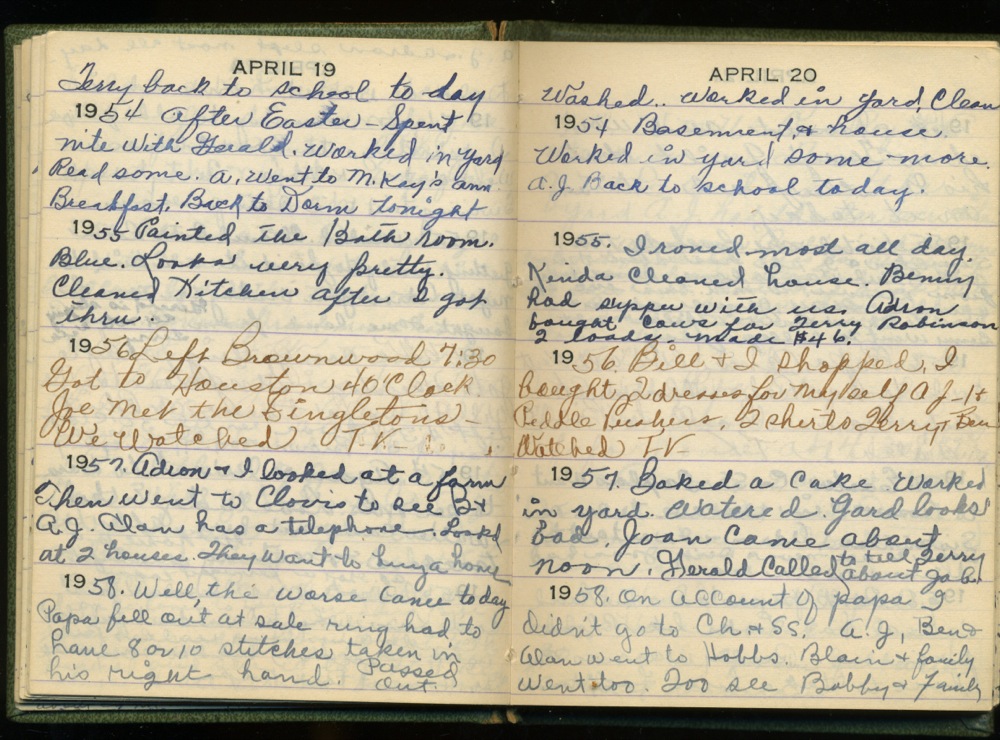 APRIL 19
Terry back to school to day
1954 After Easter - Spent
nite with Gerald. Worked in yard
Read some. A. went to M. Kay's ann
Breakfast. Back to Dorm tonight
1955 Painted the Bath room.
Blue. Looks very pretty.
Cleaned Kitchen after I got
thru.
1956 Left Brownwood 7:30
Got to Houston 4 O'Clock
Joe met the Singletons -
We Watched TV -
1957. Adron & I looked at a farm
Then went to Clovis to see B &
A.J. Alan has a telephone. Looked
at 2 houses. They want to buy a home
1958. Well, the worse came to day
Papa fell out at sale ring had to
have 8 or 10 stitches taken in
his right hand. Passed
Out.
APRIL 20
Washed.. Worked in yard, Clean
1954 Basement, & house.
Worked in yard some more.
A.J. Back to school today.
1955. Ironed most all day.
Kinda Cleaned house. Benny
had supper with us. Adron
bought cows for Terry Robinson
2 loads. made $46.
1956. Bill & I shopped, I
bought 2 dresses for myself A J - 1 +
Peddle Pushers, 2 shirts Terry + Ben
Watched TV -
1957. Baked a Cake. Worked
in yard. Watered. Yard looks
bad. Joan Came about
noon. Gerald Called to tell Terry
about job.
1958. On account of papa I
didn't go to Ch. & SS. A.J, Ben &
Alan went to Hobbs. Blain & family
went too. Too see Bobby & Family